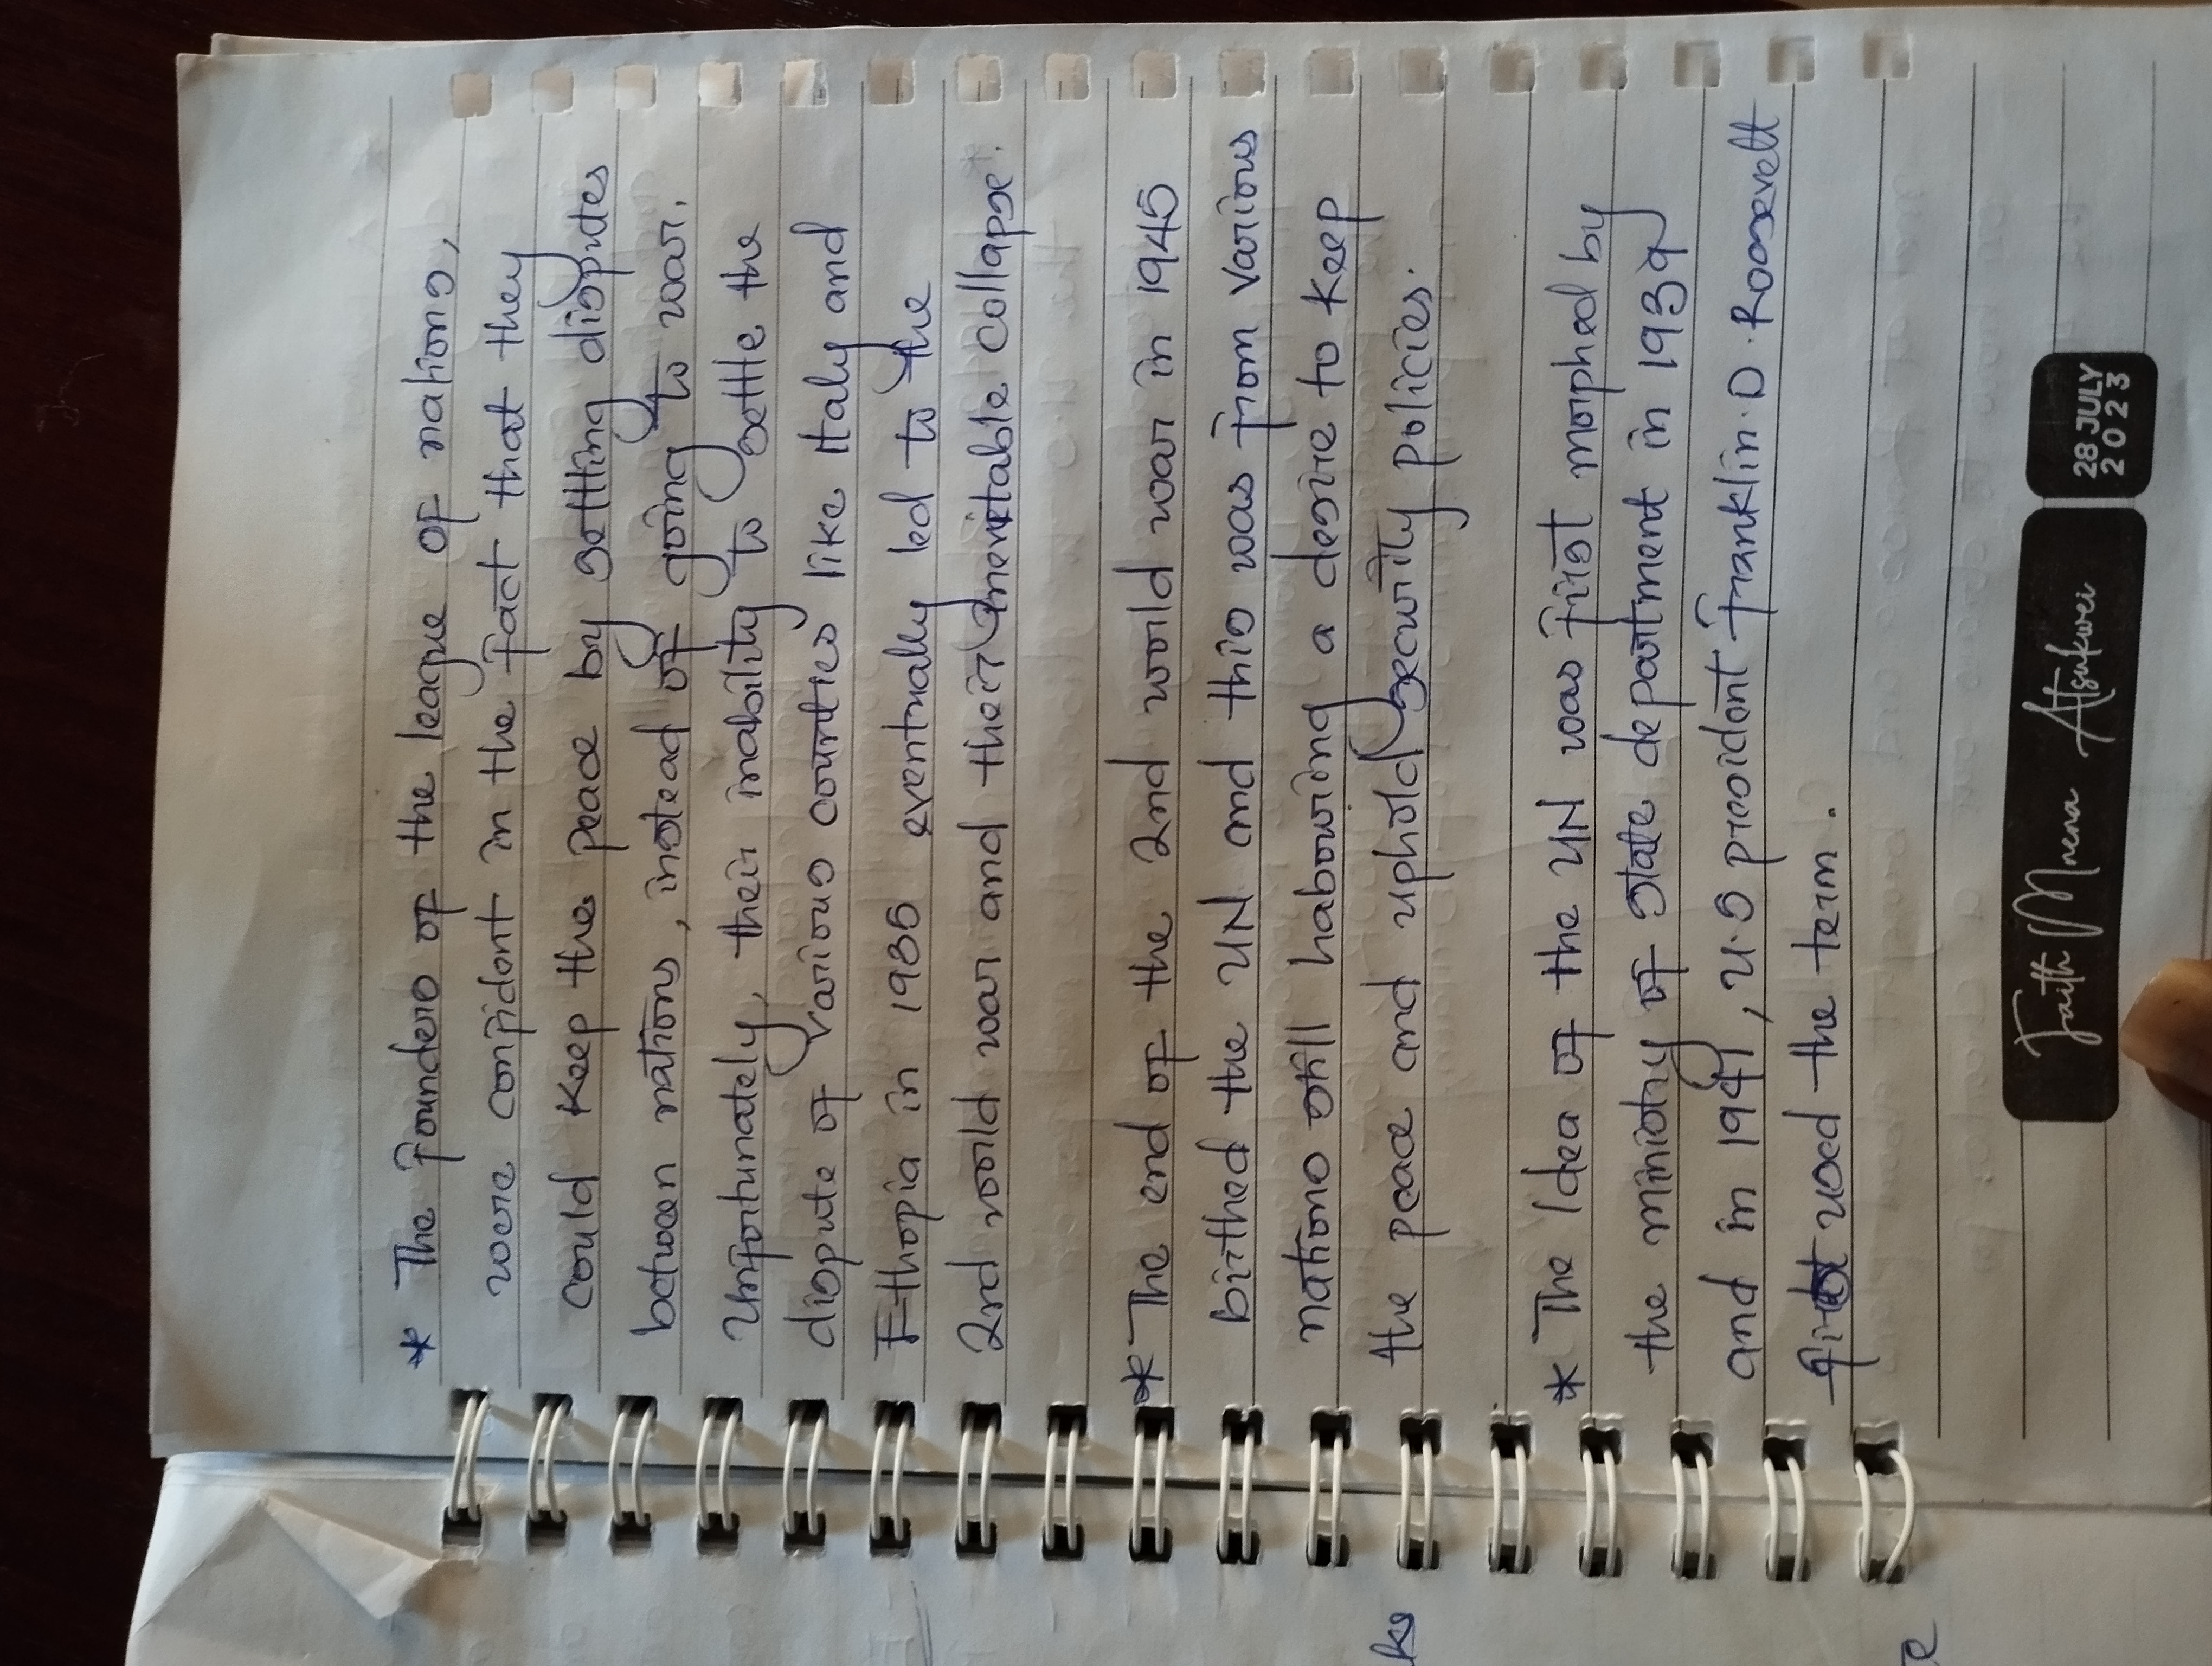 * The founders of the league of nations,
were confident in the fact that they
could keep the peace by settling disputes
between nations, instead of going to war.
Unfortunately, their inability to settle the
dispute of various countries like Italy and
Ethopia in 1935 eventually led to the
2nd world war and their inevitable collapse.
* The end of the 2nd world war in 1945
birthed the UN and this was from various
nations still habouring a desire to keep
the peace and uphold security policies.
* The Idea of the UN was first morphed by
the ministry of state department in 1939
and in 1941, U.S president Franklin. D. Roosevelt
first used the term.
Faith Mnena Atsukwei
28 JULY
2023